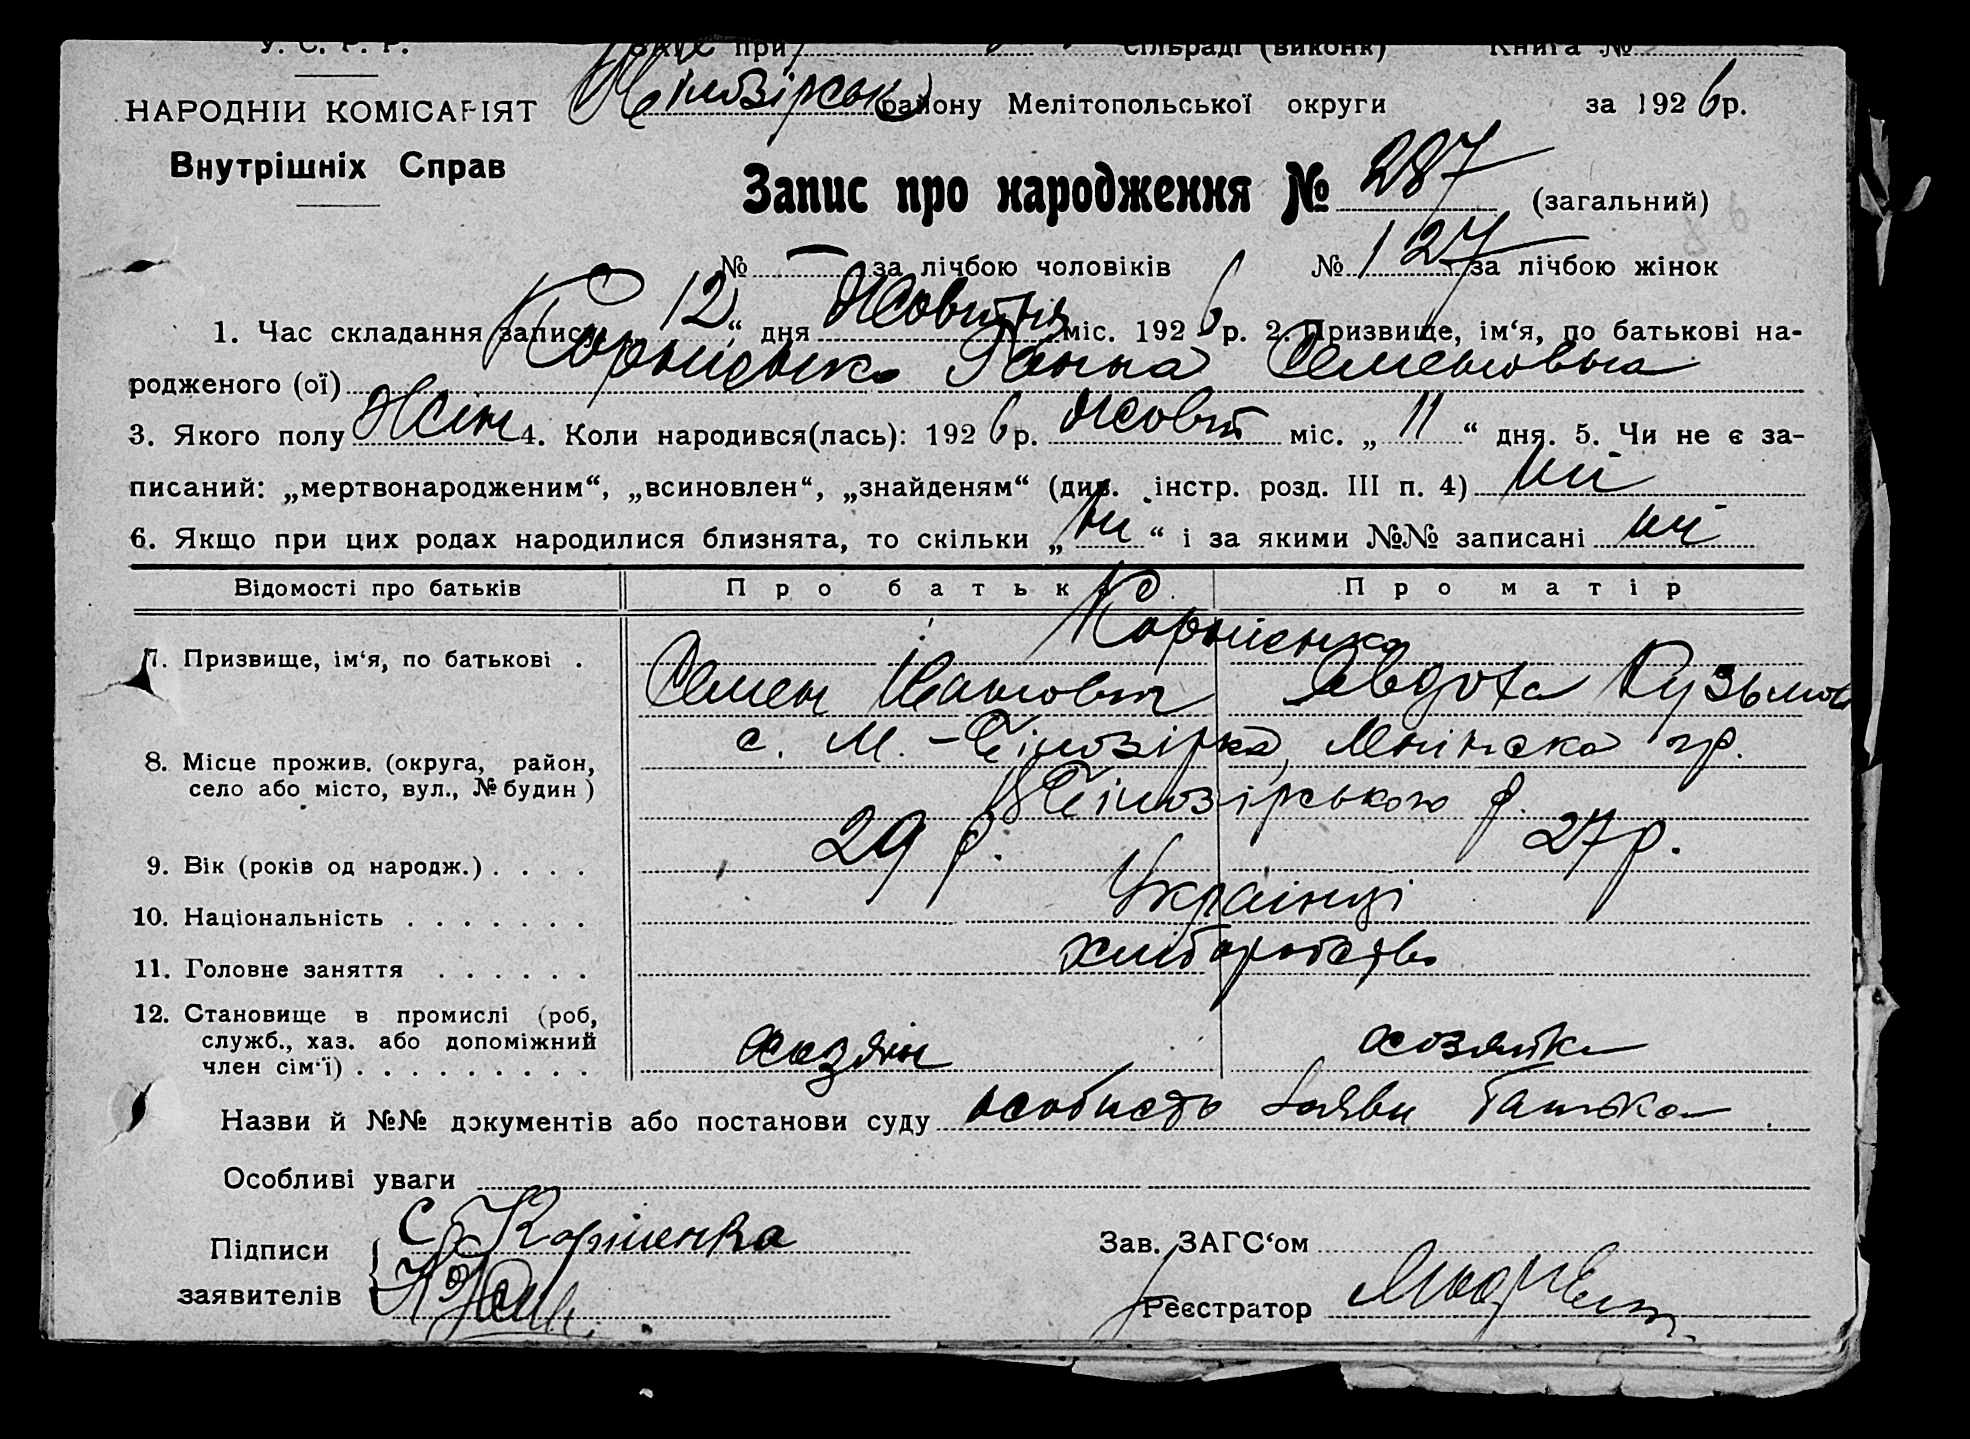 У. С. Р. Р. при сільраді (виконк) Книга №
НАРОДНІЙ КОМІСАРІЯТ району Мелітопольської округи за 1926 р.
Внутрішніх Справ
Запис про народження № 287 (загальний)
№ — за лічбою чоловіків № 127 за лічбою жінок
1. Час складання запису 12 “ дня Жовтня міс. 1926 р. 2. Призвище, ім‘я, по батькові на-
родженого (ої) Корнієнко Ганна Семеновна
3. Якого полу Жін 4. Коли народився(лась): 1926 р. Жовт міс. „ 11 “ дня. 5. Чи не є за-
писаний: „мертвонародженим“, „всиновлен“, „знайденям“ (див. інстр. розд. III п. 4) ні
6. Якщо при цих родах народилися близнята, то скільки „ ні “ і за якими №№ записані ні
Відомості про батьків Про батька Про матір
7. Призвище, ім‘я, по батькові . Корнієнко
Семен Іванович Явдоха Кузьмов
8. Місце прожив. (округа, район, с. М.-Білозірка,
село або місто, вул., № будин) Білозірського р.
9. Вік (років од народж.) . . . . 29 р. 27 р.
10. Національність . . . . . . . Українці
11. Головне заняття . . . . . . хліборобство
12. Становище в промислі (роб,
служб., хаз. або допоміжний
член сім‘ї) . . . . . . . . . хазяїн хозяйка
Назви й №№ документів або постанови суду особиста заява батька
Особливі уваги
Підписи С Корніенка Зав. ЗАГС‘ом
заявителів Реєстратор